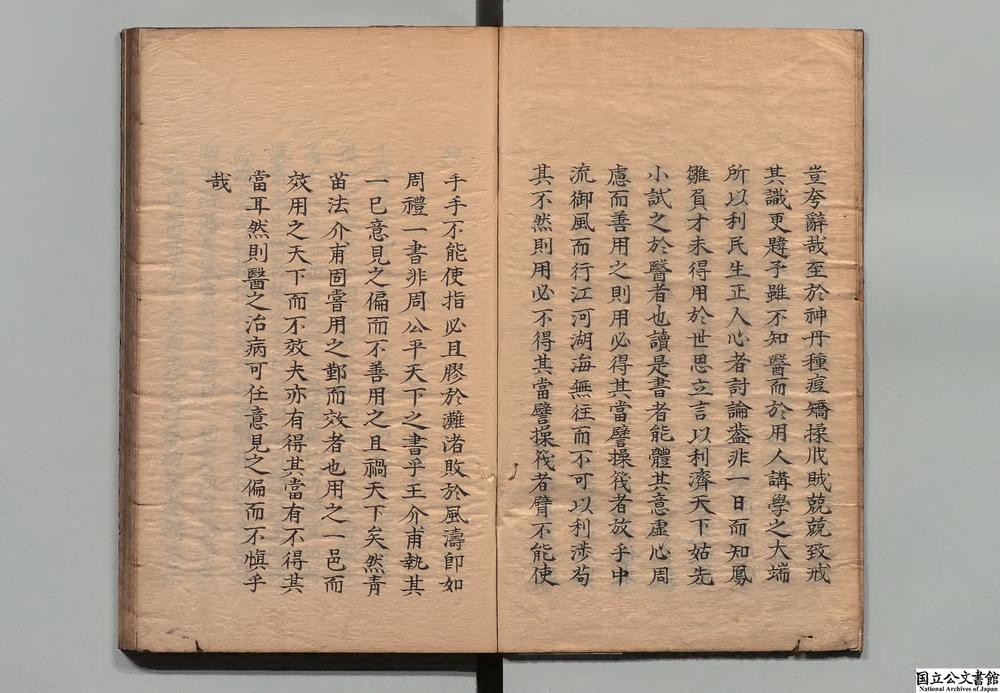 豈夸辭哉至於神丹種痘矯揉戕賊兢兢致戒
其識更韙予雖不知醫而於用人講學之大端
所以利民生正人心者討論葢非一日而知鳳
雛負才未得用於世思立言以利濟天下姑先
小試之於醫者也讀是書者能體其意虛心周
慮而善用之則用必得其當譬操筏者放乎中
流御風而行江河湖海無往而不可以利涉苟
其不然則用必不得其當譬操筏者臂不能使
手手不能使指必且膠於灘渚敗於風濤卽如
周禮一書非周公平天下之書乎王介甫執其
一已意見之偏而不善用之且禍天下矣然靑
苗法介甫固嘗用之鄞而效者也用之一邑而
效用之天下而不效夫亦有得其當有不得其
當耳然則醫之治病可任意見之偏而不愼乎
哉
国立公文書館
National Archives of Japan